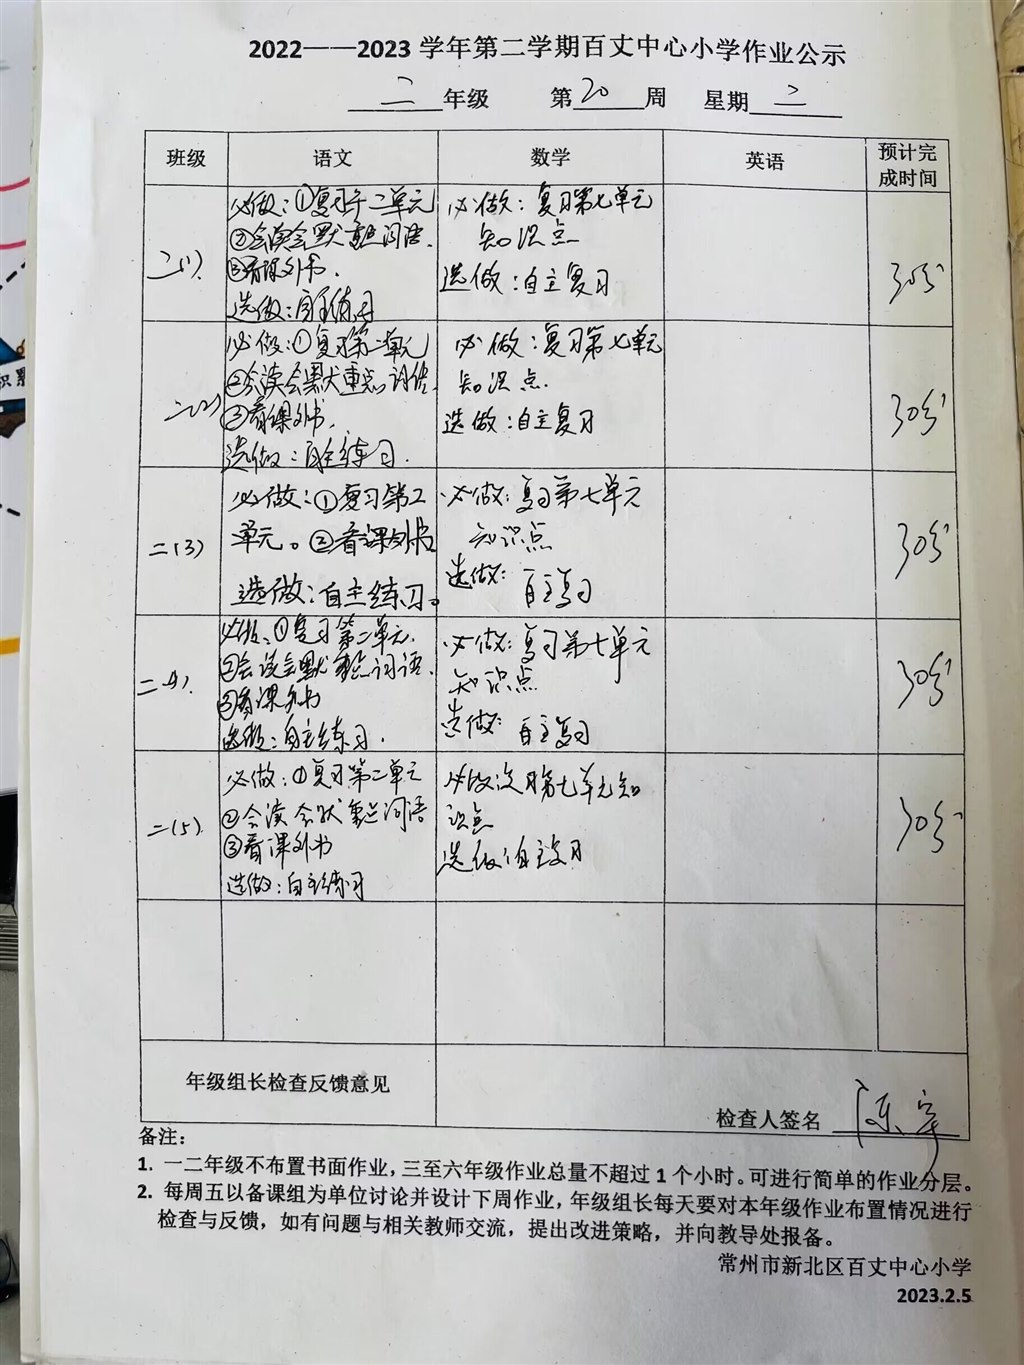 2022——2023 学年第二学期百丈中心小学作业公示
二 年级 第 20 周 星期 二
班级 语文 数学 英语 预计完成时间
二(1).
必做：①复习第二单元
②会读会默重点词语.
③看课外书.
选做：自主练习
必做：复习第七单元
知识点
选做：自主复习
30分
二(2)
必做：①复习第二单元
②会读会默重点词语.
③看课外书.
选做：自主练习.
必做：复习第七单元
知识点.
选做：自主复习
30分
二(3)
必做：①复习第二
单元。②看课外书
选做：自主练习。
必做：复习第七单元
知识点
选做：自主复习
30分
二(4).
必做：①复习第二单元.
②会读会默重点词语.
③看课外书
选做：自主练习.
必做：复习第七单元
知识点
选做：自主复习
30分
二(5).
必做：①复习第二单元
②会读会默重点词语
③看课外书
选做：自主练习
必做：复习第七单元知
识点
选做：自主复习
30分
年级组长检查反馈意见
检查人签名
备注：
1. 一二年级不布置书面作业，三至六年级作业总量不超过 1 个小时。可进行简单的作业分层。
2. 每周五以备课组为单位讨论并设计下周作业，年级组长每天要对本年级作业布置情况进行
检查与反馈，如有问题与相关教师交流，提出改进策略，并向教导处报备。
常州市新北区百丈中心小学
2023.2.5